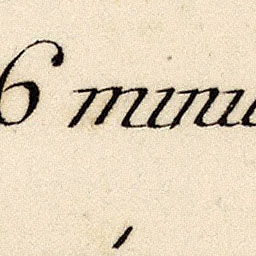 6 minu